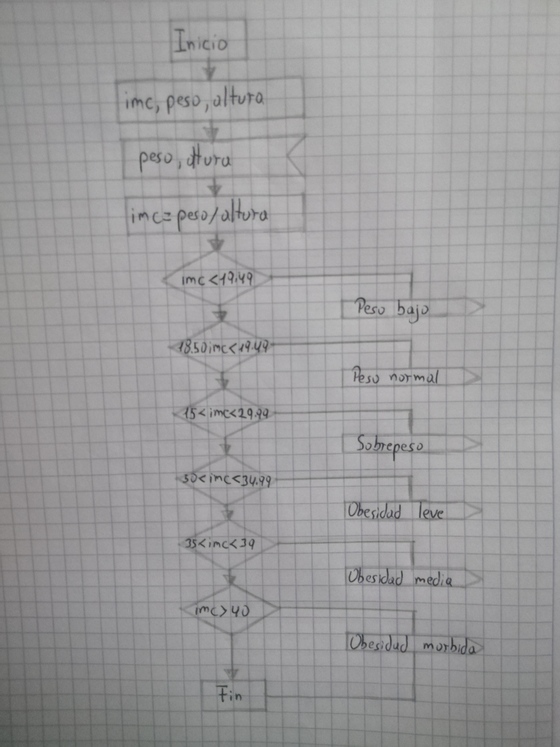 Inicio
imc, peso, altura
peso, altura
imc=peso/altura
imc<19.49
Peso bajo
18.50imc<19.49
Peso normal
15<imc<29.99
Sobrepeso
30<imc<34.99
Obesidad leve
35<imc<39
Obesidad media
imc>40
Obesidad morbida
Fin